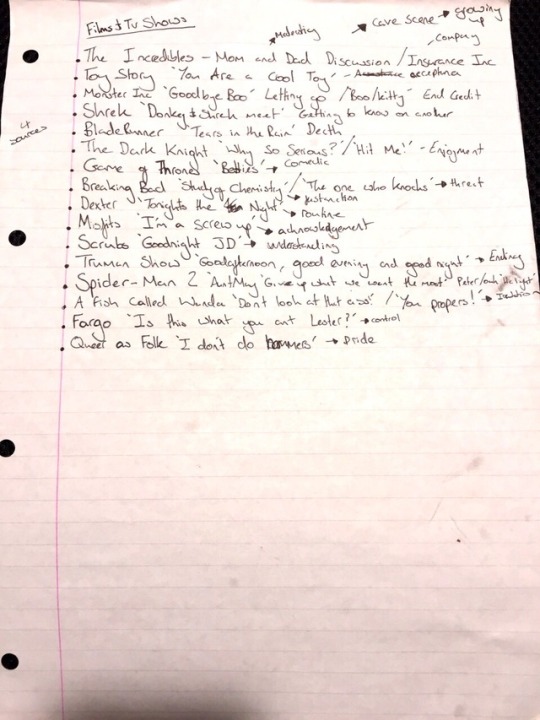 Films & Tv Shows
Motivating
Cave Scene → growing up
Company
4 sources
The Incredibles - Mom and Dad Discussion / Insurance Inc
Toy Story 'You Are a Cool Toy' - acceptance
Monster Inc 'Goodbye Boo' Letting go / 'Boo/kitty' End Credit
Shrek 'Donkey & Shrek meet' Getting to know on another
BladeRunner 'Tears in the Rain' Death
The Dark Knight 'Why So Serious?' / 'Hit Me!' - Enjoyment
Game of Throned → Comedic
Breaking Bad 'Study of Chemistry' / 'The one who knocks' → threat
Dexter 'Tonights the Night' → justification → routine
Misfits 'I'm a screw up' → acknowledgement
Scrubs 'Goodnight JD' → understanding
Truman Show 'Good afternoon, good evening and good night' → Ending
Spider-Man 2 'Aunt May' 'Give up what we want the most' Peter/
A Fish Called Wanda 'Don't look at that' / 'You
Fargo 'Is this what you ant Lester?' → control
Queer as Folk 'I don't do' → pride